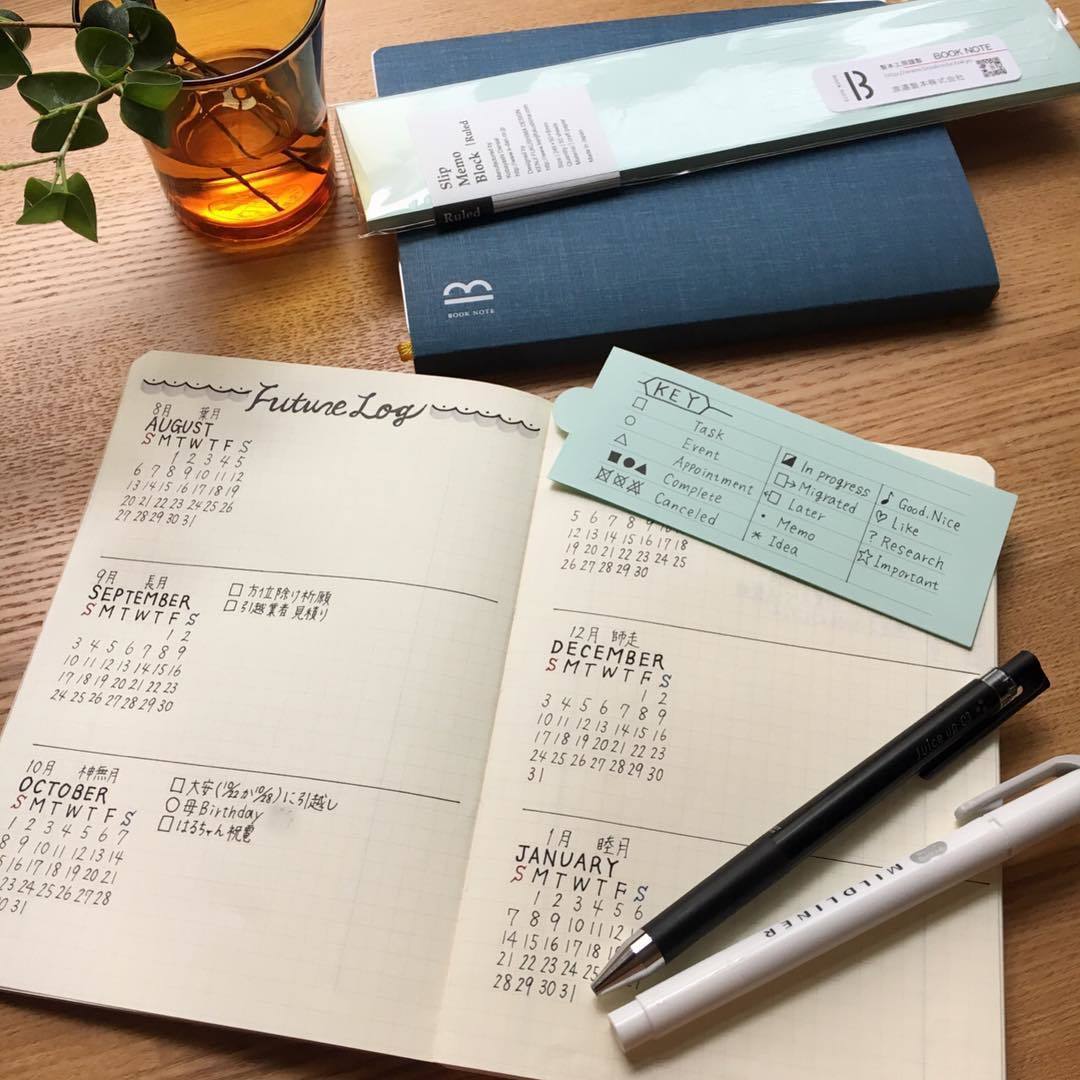 Slip
Memo
Block | Ruled
Ruled
Made in Japan
製本工房謹製 BOOK NOTE
渡邉製本株式会社
B
BOOK NOTE
Future Log
8月 葉月
AUGUST
S M T W T F S
1 2 3 4 5
6 7 8 9 10 11 12
13 14 15 16 17 18 19
20 21 22 23 24 25 26
27 28 29 30 31
9月 長月
SEPTEMBER
S M T W T F S
1 2
3 4 5 6 7 8 9
10 11 12 13 14 15 16
17 18 19 20 21 22 23
24 25 26 27 28 29 30
□ 方位除け祈願
□ 引越業者見積り
10月 神無月
OCTOBER
S M T W T F S
1 2 3 4 5 6 7
8 9 10 11 12 13 14
15 16 17 18 19 20 21
23 24 25 26 27 28
31
□ 大安(10/22か10/28)に引越し
○ 母Birthday
□ はるちゃん祝電
KEY
□ Task
○ Event
△ Appointment
■●▲ Complete
Canceled
In progress
Migrated
Later
• Memo
* Idea
♪ Good, Nice
♡ Like
? Research
☆ Important
5 6 7 8 9 10
12 13 14 15 16 17 18
19 20 21 22 23 24 25
26 27 28 29 30
12月 師走
DECEMBER
S M T W T F S
1 2
3 4 5 6 7 8 9
10 11 12 13 14 15 16
17 18 19 20 21 22 23
24 25 26 27 28 29 30
31
1月 睦月
JANUARY
S M T W T F S
1 2 3 4 5 6
7 8 9 10 11 12
14 15 16 17 18 19
21 22 23 24 25
28 29 30 31
Juice up 03
MILDLINER